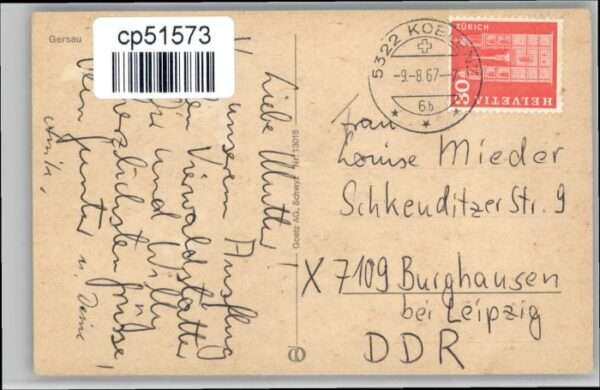 Gersau
cp51573
Liebe Mutter!
V. unserem Ausflug
Vierwaldstätter
Dir und Willy
herzlichsten Grüsse,
Dein Gunter u. Deine
Anita,
Goetz AG, Schwyz Nr. 13018
5322 KOBLENZ
-9.-8.67-
6b
ZÜRICH
30
HELVETIA
Frau
Louise Mieder
Schkeuditzer Str. 9
X 7109 Burghausen
bei Leipzig
DDR